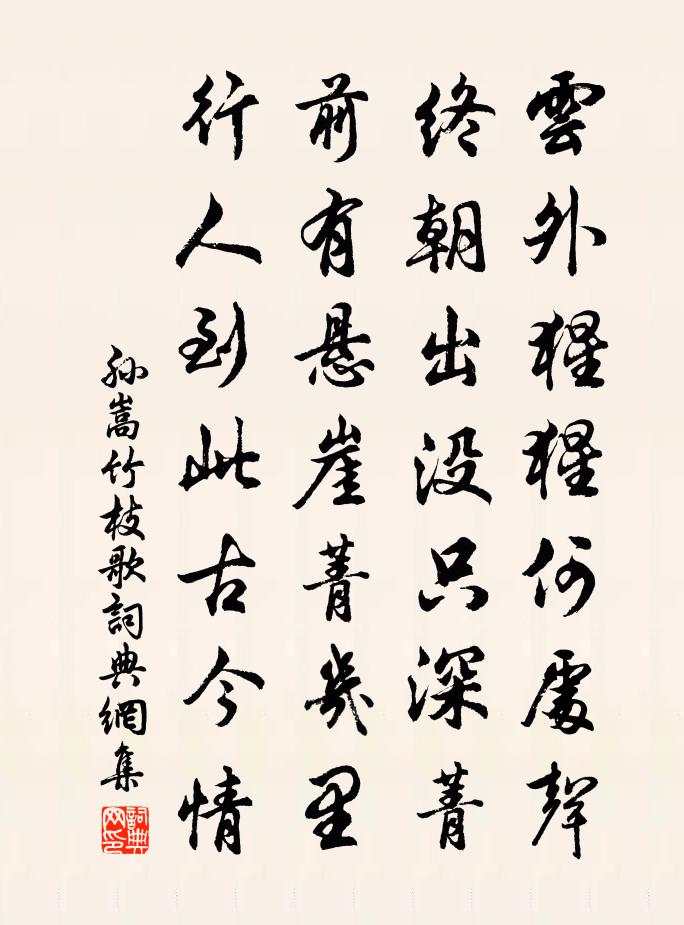 雲外猩猩何處聲
終朝出没只深菁
前有懸崖菁幾里
行人到此古今情
孙嵩竹枝歌詞典網集
詞典网印